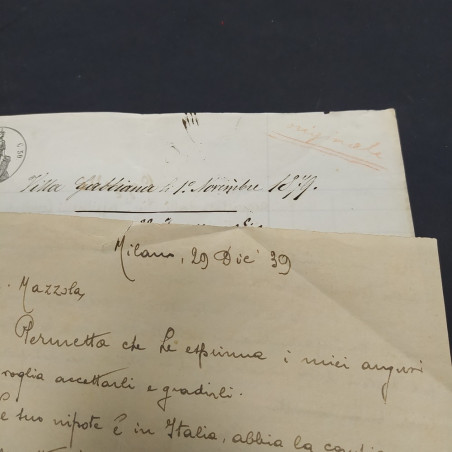 originale
Villa Gabbiana li 1º Novembre 1879.
Milano, 29 Dic' 39
Mazzola,
Permetta che Le esprima i miei auguri
voglia accettarli e gradirli.
suo nipote è in Italia, abbia la